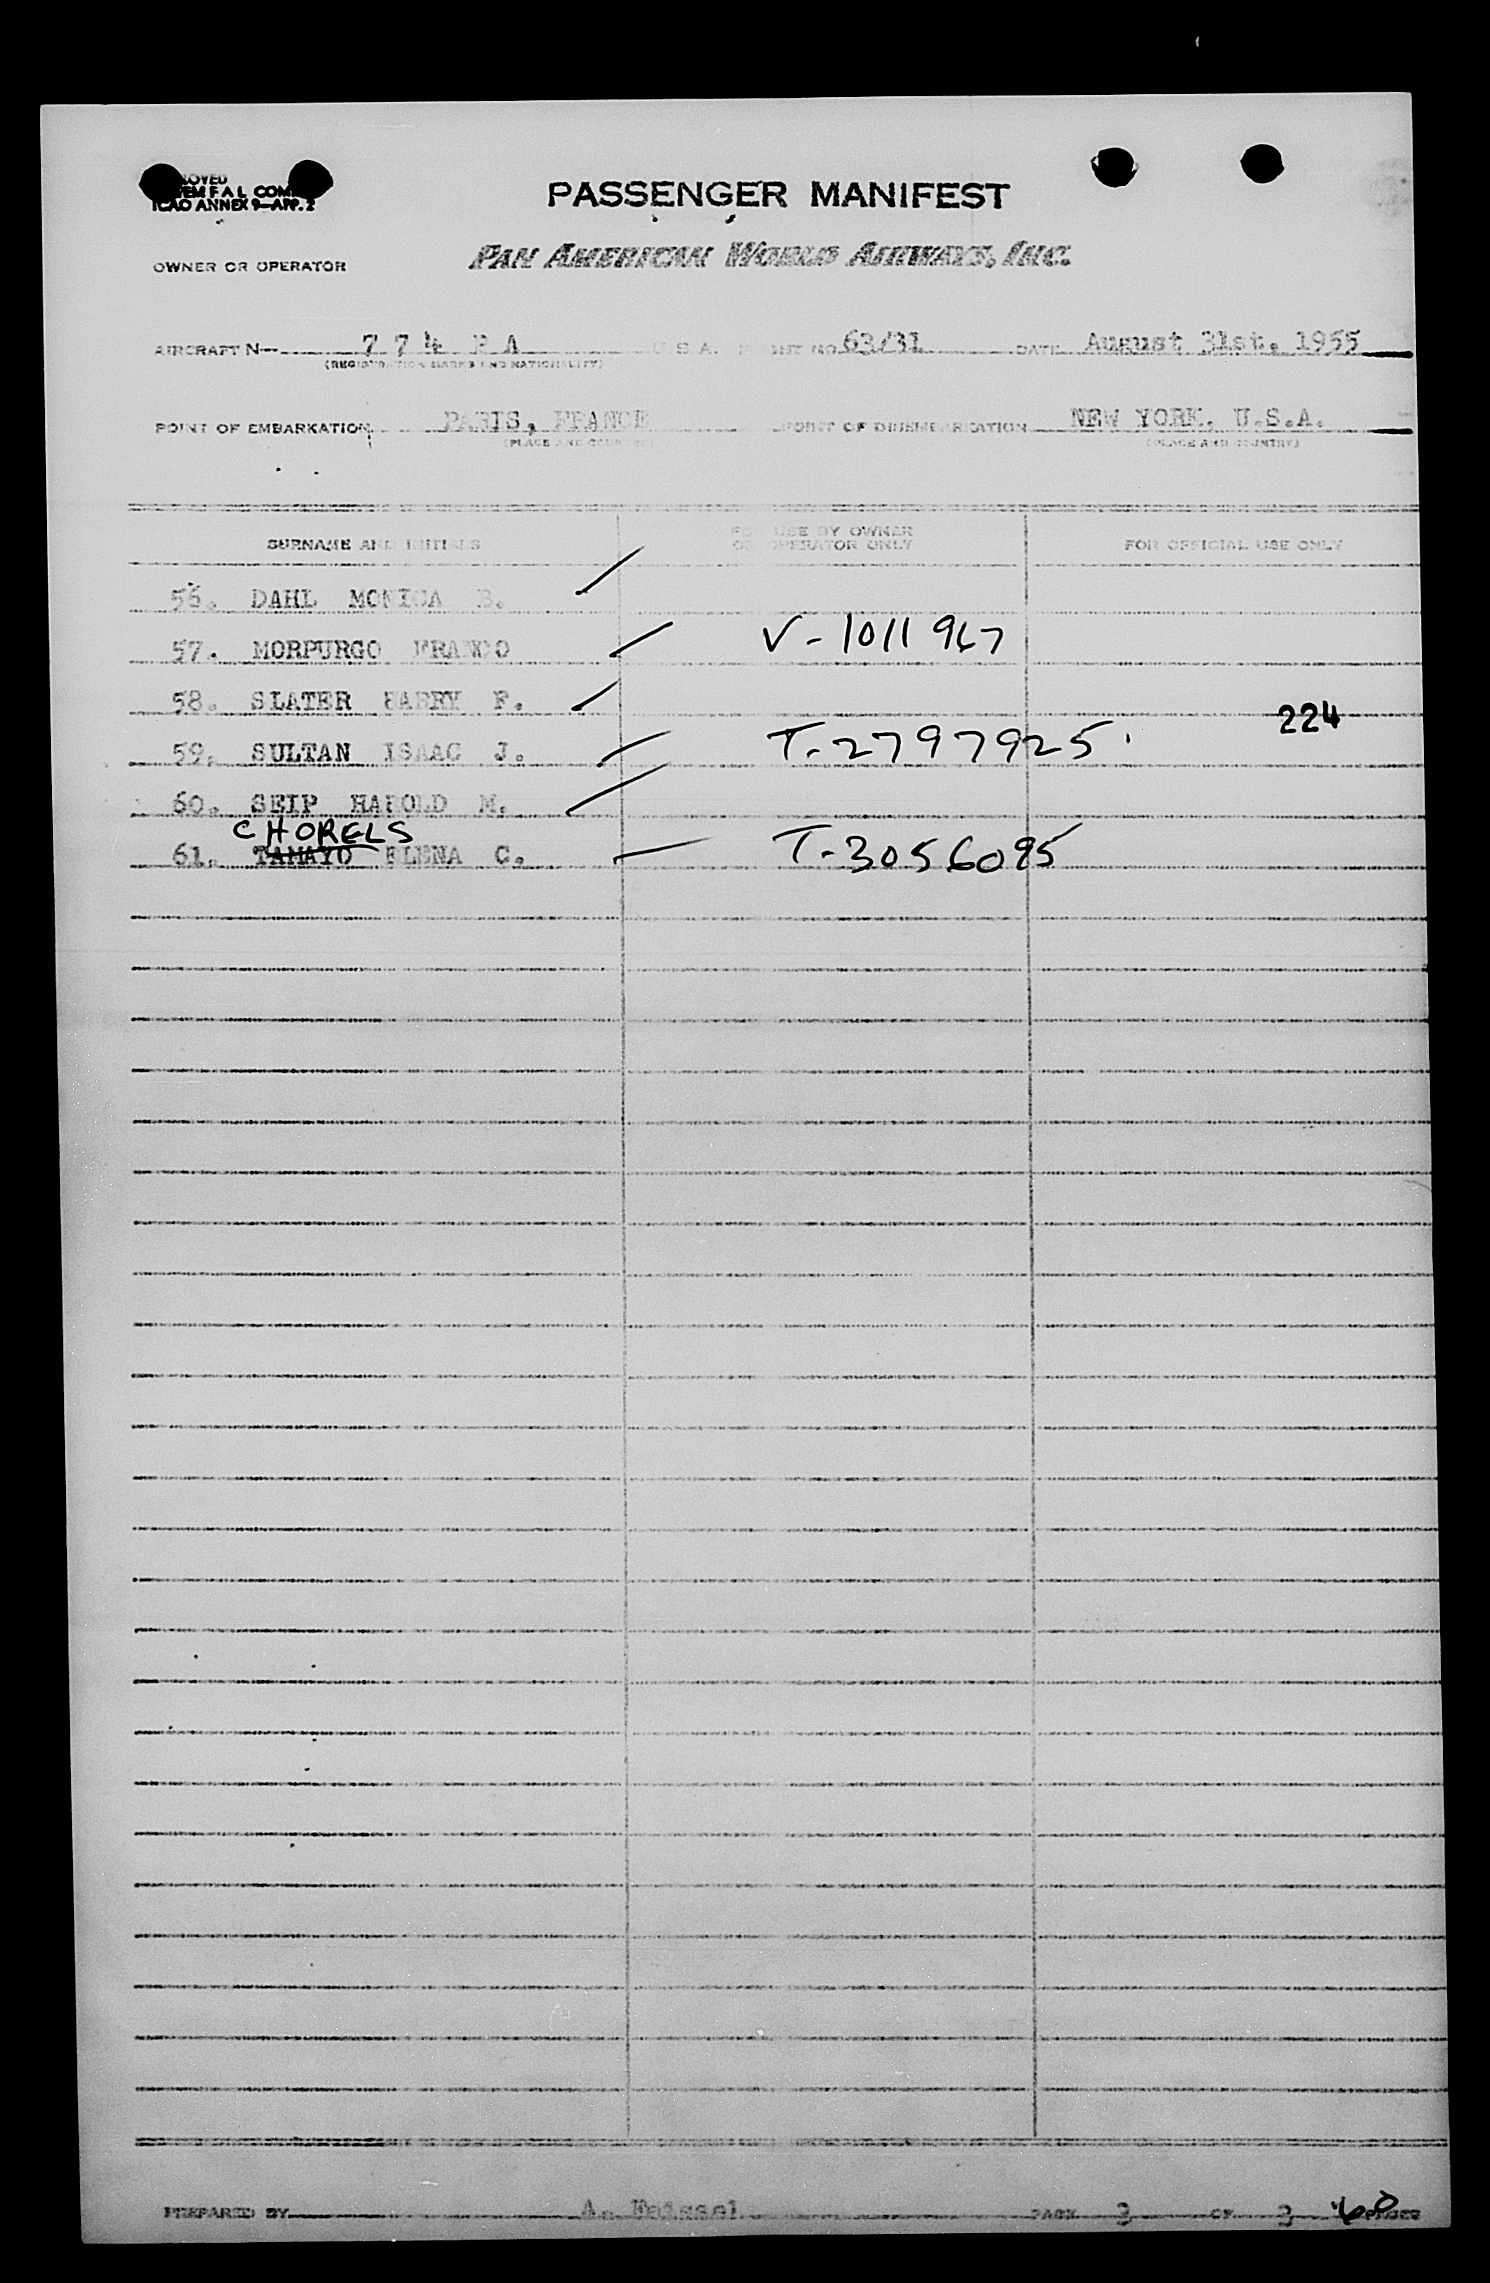 PASSENGER MANIFEST
ICAO ANNEX 9—APP. 2
OWNER OR OPERATOR PAN AMERICAN WORLD AIRWAYS, INC.
AIRCRAFT N— 7 7 4 P A U.S.A. FLIGHT NO. 63/31 DATE August 31st. 1955
(REGISTRATION MARKS AND NATIONALITY)
POINT OF EMBARKATION PARIS, FRANCE POINT OF DISEMBARKATION NEW YORK, U.S.A.
(PLACE AND COUNTRY) (PLACE AND COUNTRY)
SURNAME AND INITIALS FOR USE BY OWNER OR OPERATOR ONLY FOR OFFICIAL USE ONLY
56. DAHL MONICA B.
57. MORPURGO FRANCO V-1011967
58. SLATER HARRY F.
224
59. SULTAN ISAAC J. T-2797925
60. SEIP HAROLD M.
CHORELS
61. TAMAYO ELENA C. T-3056095
PREPARED BY A. Feissel PAGE 3 OF 3 PAGES
60